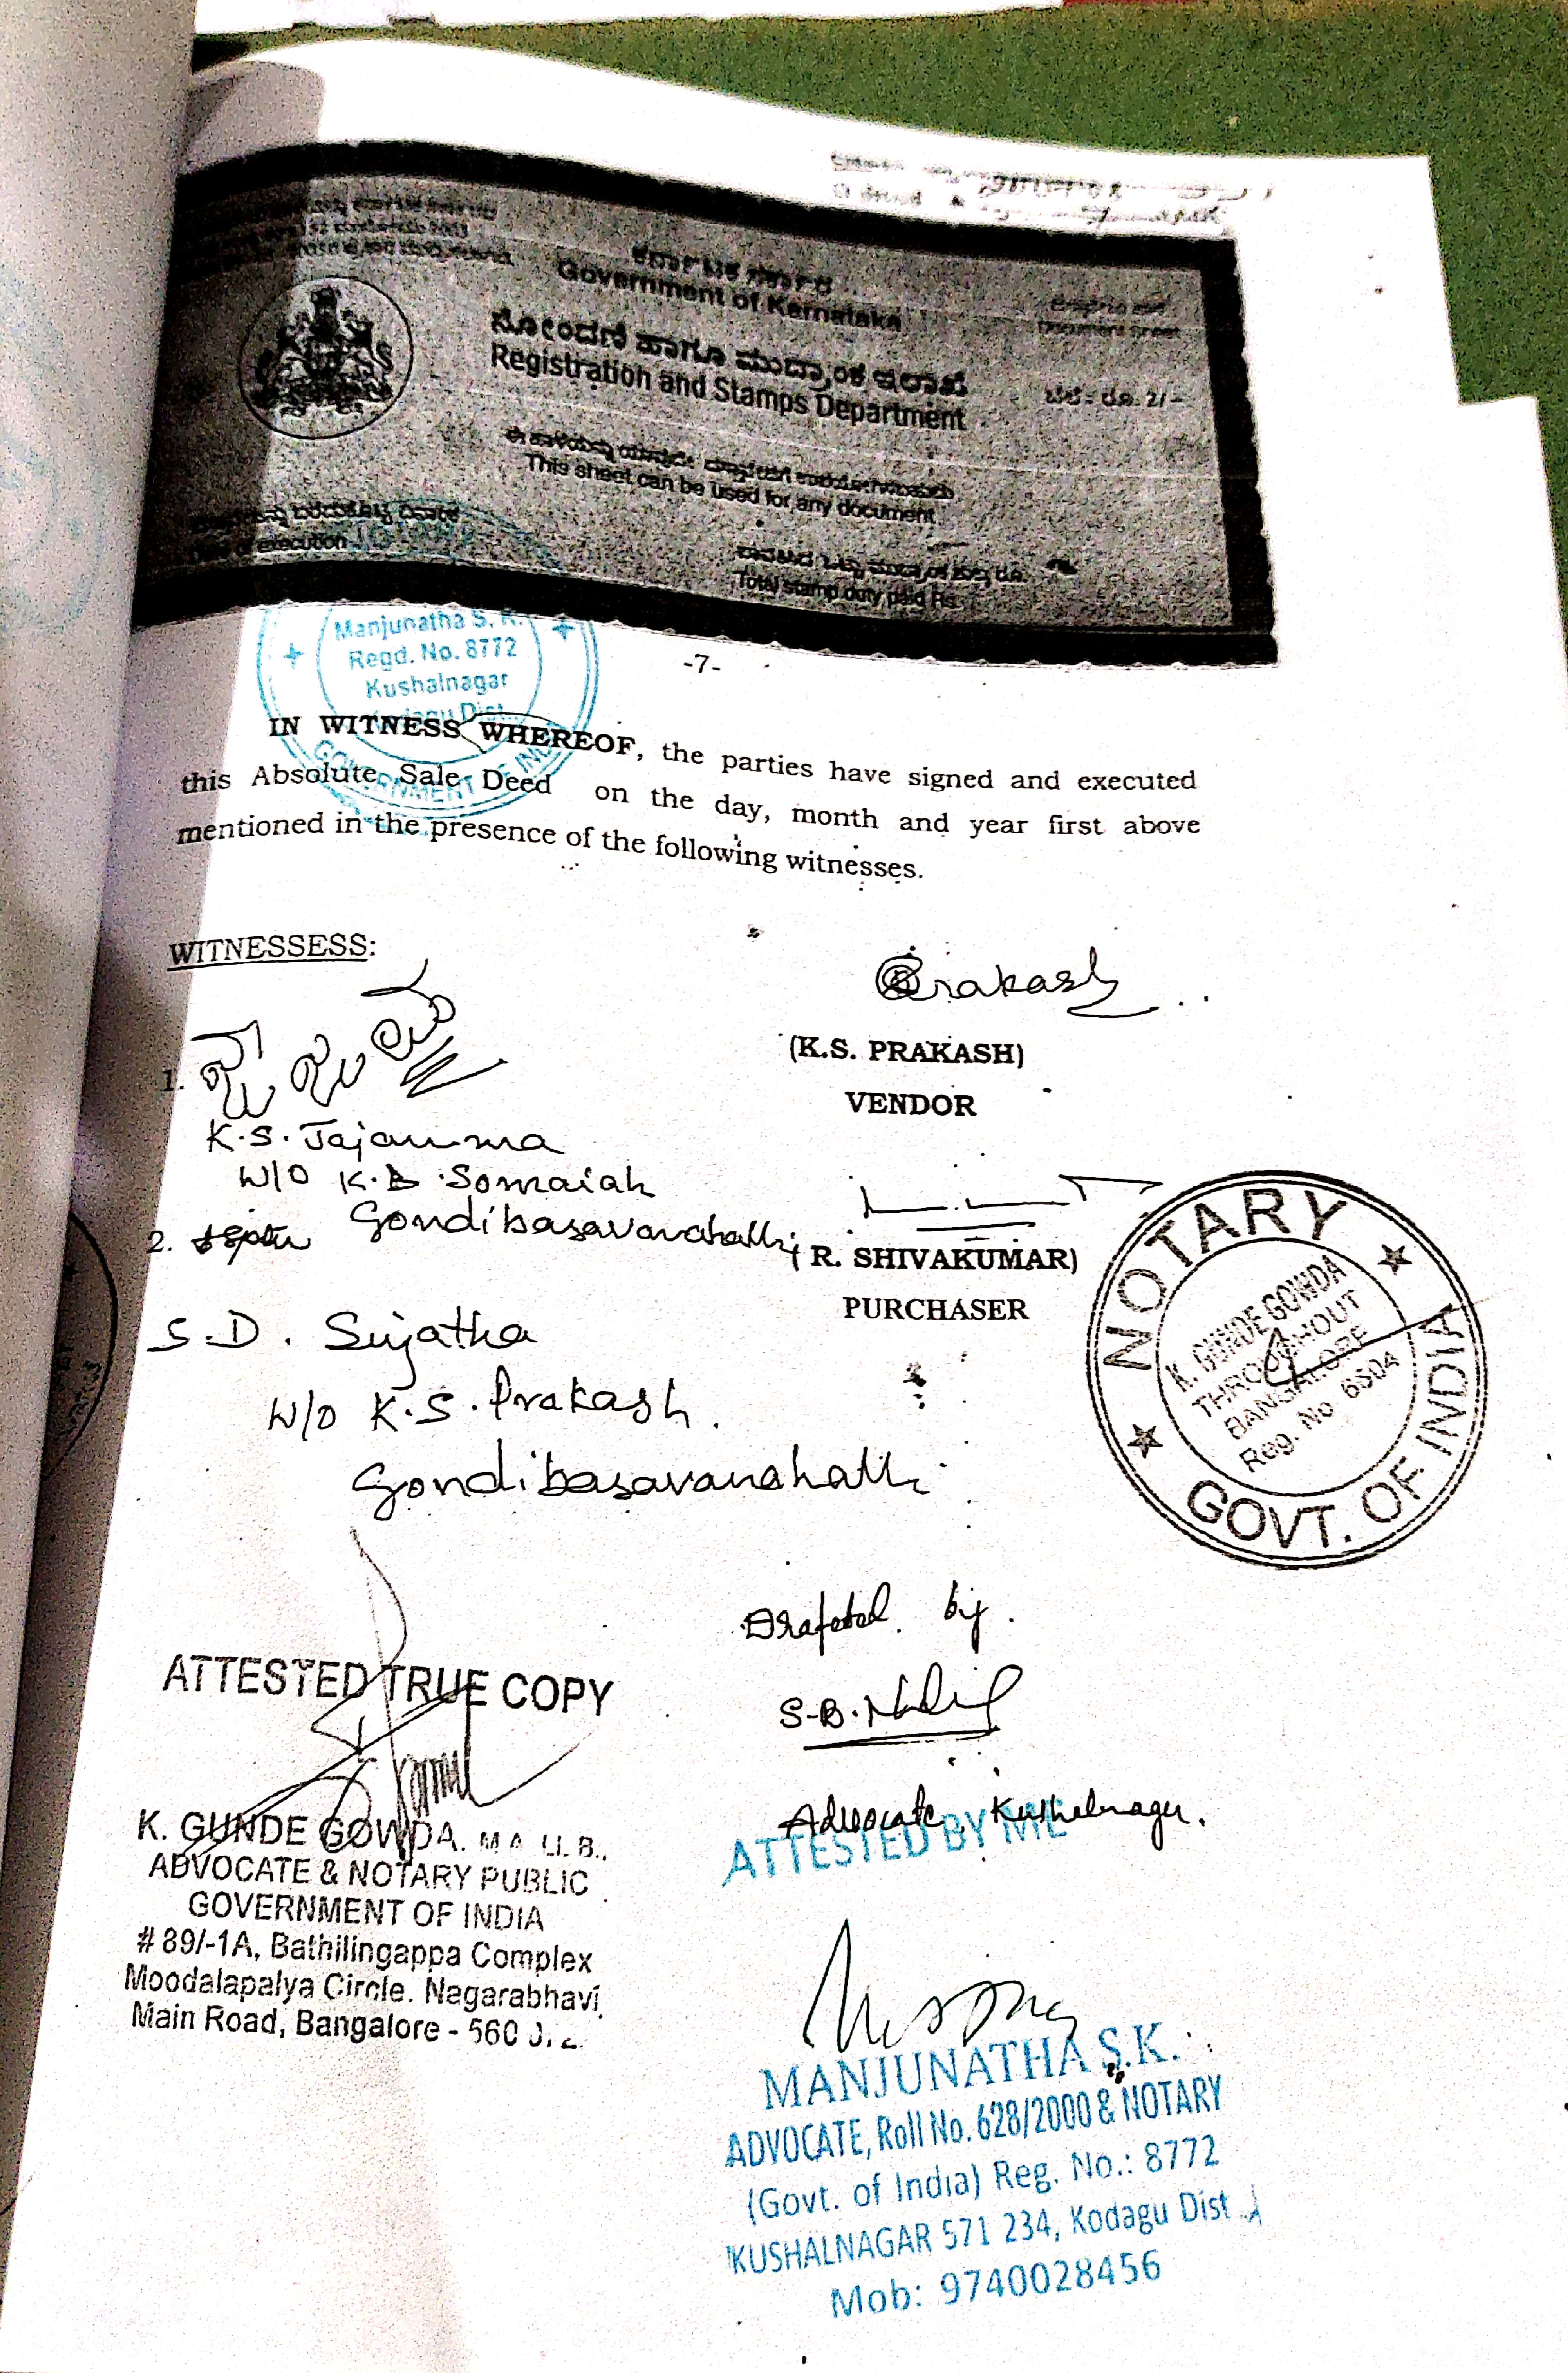 ಕರ್ನಾಟಕ ಸರ್ಕಾರ
Government of Karnataka
Document Sheet
ನೋಂದಣಿ ಹಾಗೂ ಮುದ್ರಾಂಕ ಇಲಾಖೆ
Registration and Stamps Department
ಬೆಲೆ : ರೂ. 2/-
This sheet can be used for any document
Date of execution
Total stamp duty paid Rs.
Manjunatha S. K.
Regd. No. 8772
Kushalnagar
Kodagu Dist.
GOVERNMENT OF INDIA
-7-
IN WITNESS WHEREOF, the parties have signed and executed
this Absolute Sale Deed on the day, month and year first above
mentioned in the presence of the following witnesses.
WITNESSESS:
Prakash
(K.S. PRAKASH)
VENDOR
1.
K.S. Jajamma
W/O K.B. Somaiah
Gondibasavanahalli
2.
(R. SHIVAKUMAR)
PURCHASER
S.D. Sujatha
W/o K.S. Prakash.
Gondibasavanahalli
NOTARY
K. GUNDE GOWDA
THROUGHOUT
BANGALORE
Reg. No 6504
GOVT. OF INDIA
Drafted by.
S.B.
Advocate, Kushalnagar.
ATTESTED TRUE COPY
K. GUNDE GOWDA. M A LL B.,
ADVOCATE & NOTARY PUBLIC
GOVERNMENT OF INDIA
# 89/-1A, Bathilingappa Complex
Moodalapalya Circle. Nagarabhavi
Main Road, Bangalore - 560
ATTESTED BY ME
MANJUNATHA S.K.
ADVOCATE, Roll No. 628/2000 & NOTARY
(Govt. of India) Reg. No.: 8772
KUSHALNAGAR 571 234, Kodagu Dist
Mob: 9740028456